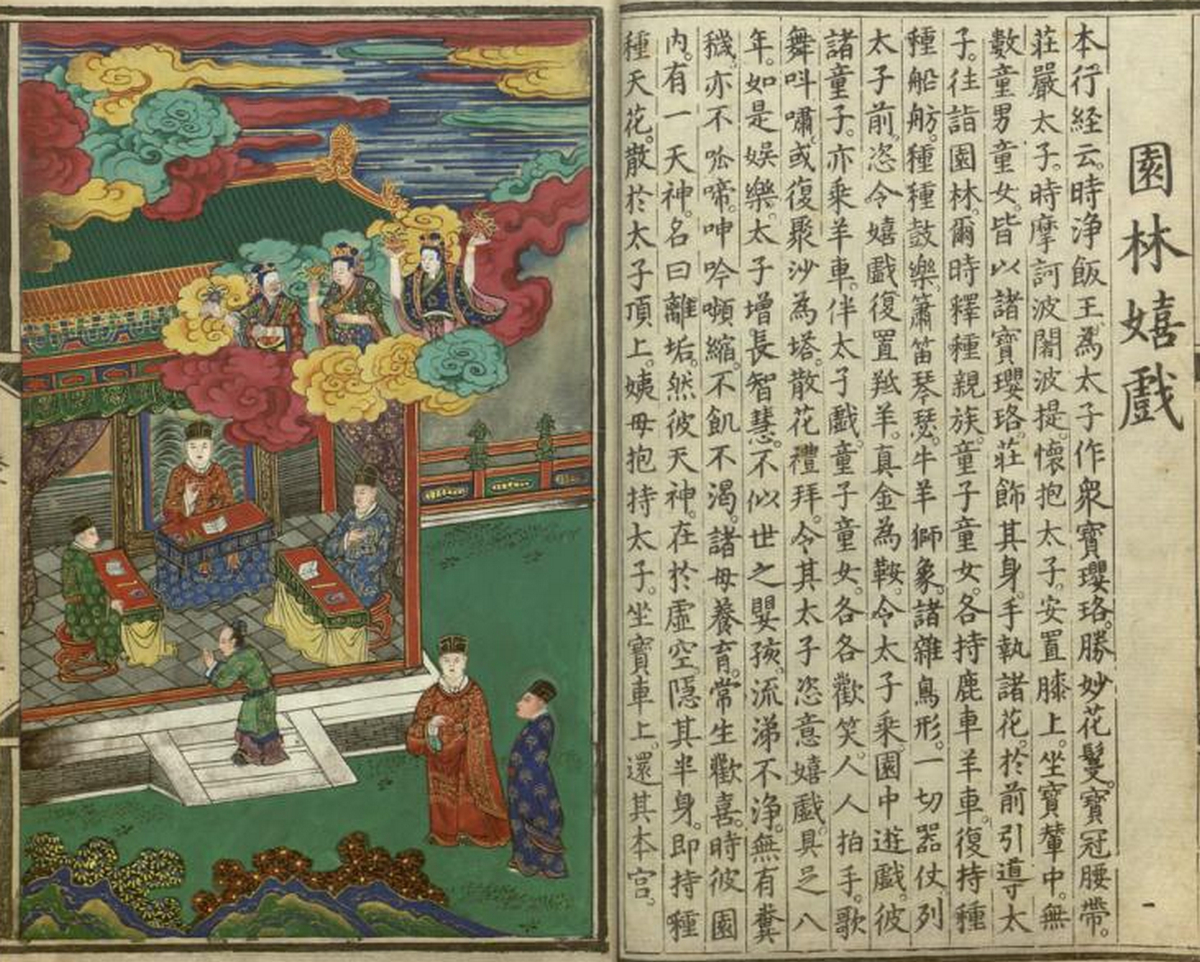 園林嬉戲
本行経云。時浄飯王為太子作衆寶瓔珞。勝妙花鬘。寶冠腰帶。
莊嚴太子。時摩訶波闍波提。懷抱太子。安置膝上。坐寶輦中。無
數童男童女。皆以諸寶瓔珞。莊飾其身。手執諸花。於前引導太
子。往詣園林。爾時釋種親族。童子童女。各持鹿車羊車。復持種
種船舫。種種鼓樂。簫笛琴瑟。牛羊獅象。諸雜鳥形。一切器仗列
太子前。恣令嬉戲。復置羝羊。真金為鞍。令太子乘。園中遊戲。彼
諸童子。亦乘羊車。伴太子戲。童子童女。各各歡笑。人人拍手。歌
舞呌嘯。或復聚沙為塔。散花禮拜。令其太子恣意嬉戲。具足八
年。如是娛樂。太子增長智慧。不似世之嬰孩。流涕不浄。無有糞
穢。亦不啼。呻吟嚬縮。不飢不渴。諸母養育。常生歡喜。時彼園
內。有一天神。名曰離垢。然彼天神。在於虛空。隱其半身。即持種
種天花。散於太子頂上。姨母抱持太子。坐寶車上。還其本宮。